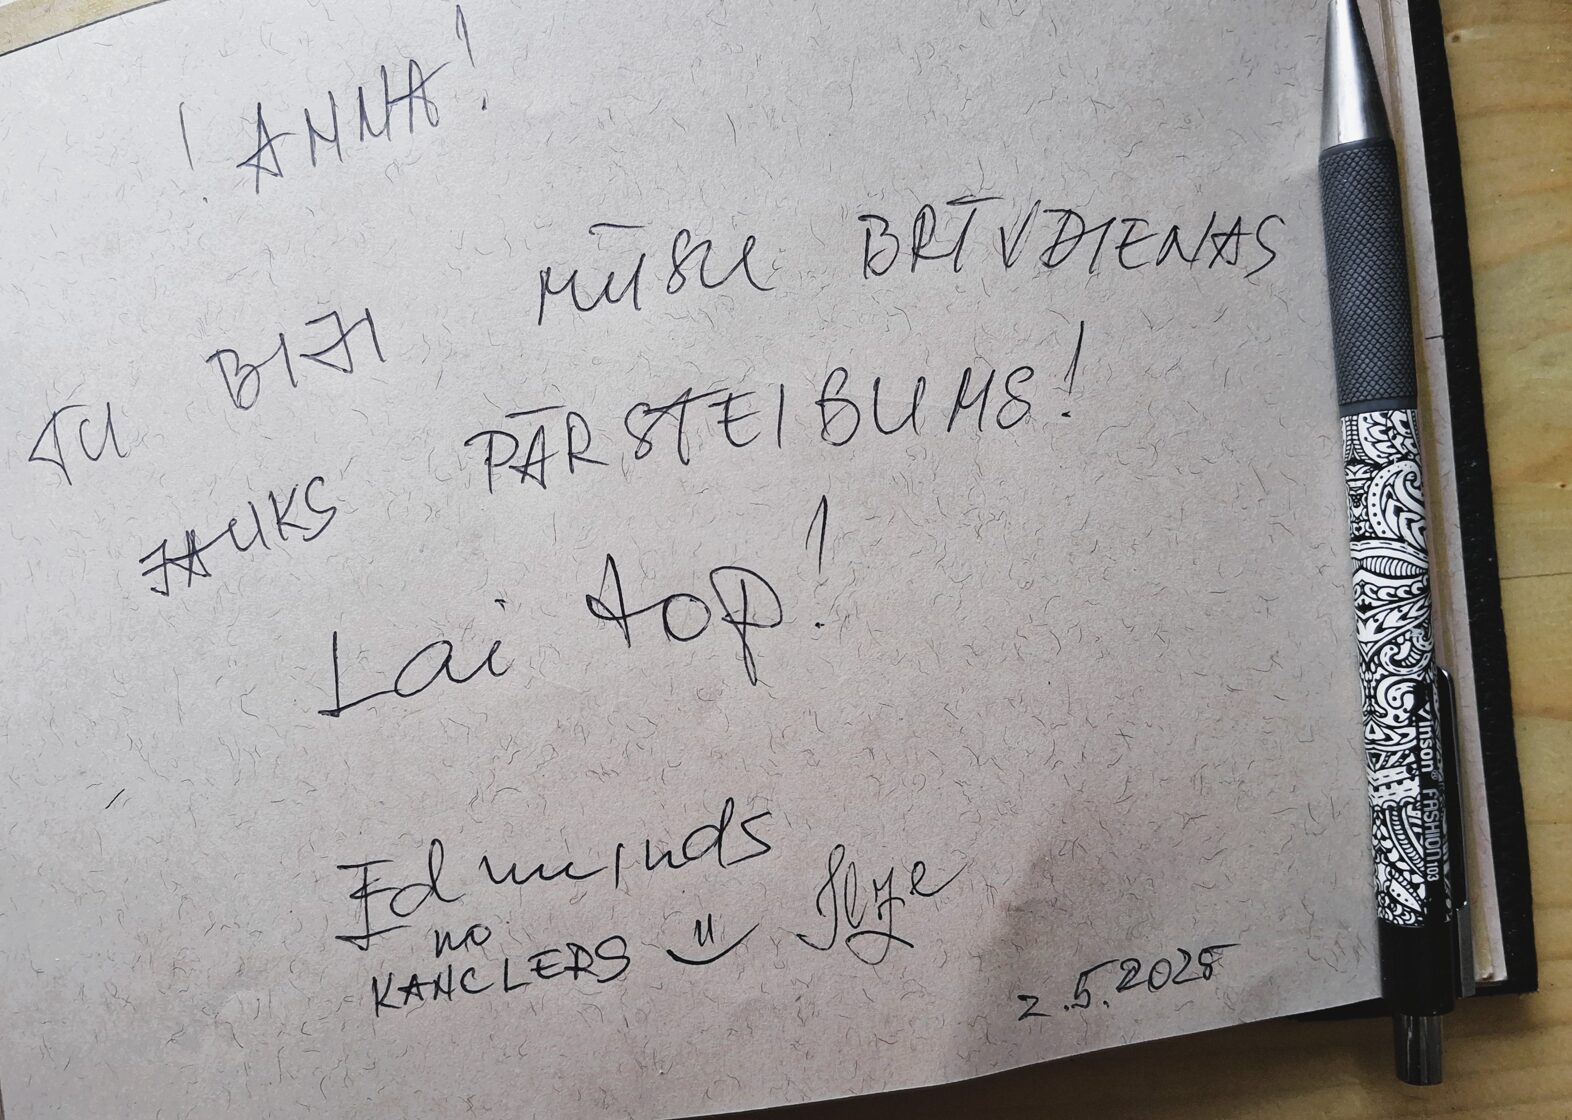 ! ANNA!
TU BIJI MŪSU BRĪVDIENAS
JAUKS PĀRSTEIBUMS!
Lai top!
Edmunds
no
KANCLERS Ilze
2.5.2025
Vinson® FASHION 103